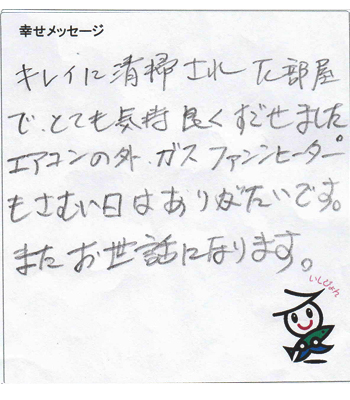 幸せメッセージ
キレイに清掃された部屋
で、とても気持良くすごせました。
エアコンの外、ガスファンヒーター
もさむい日はありがたいです。
またお世話になります。